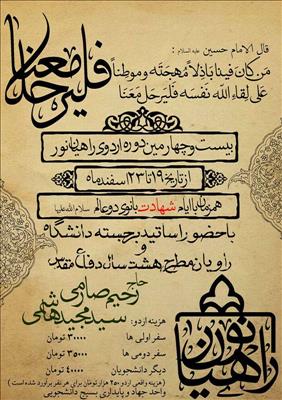 فلیرحل معنا
قال الامام حسین علیه السلام :
مَن کان فینا باذِلاً مُهجَتَه و موطِناً
عَلی لِقاءِ الله نَفسَه فَلیَرحَل مَعَنا
بیست و چهارمین دوره اردوی راهیان نور
از تاریخ ۱۹ تا ۲۳ اسفندماه
همزمان با ایام شهادت بانوی دو عالم سلام الله علیها
با حضور اساتید برجسته دانشگاه
و
راویان مطرح هشت سال دفاع مقدس
حاج رحیم صارمی
سید مجید هاشمی
هزینه اردو:
سفر اولی ها ۳۰۰۰۰ تومان
سفر دومی ها ۳۵۰۰۰ تومان
دیگر دانشجویان ۴۰۰۰۰ تومان
(هزینه واقعی اردو ۲۵۰ هزار تومان برای هر نفر برآورد شده است)
واحد جهاد و پایداری بسیج دانشجویی
راهیان نور